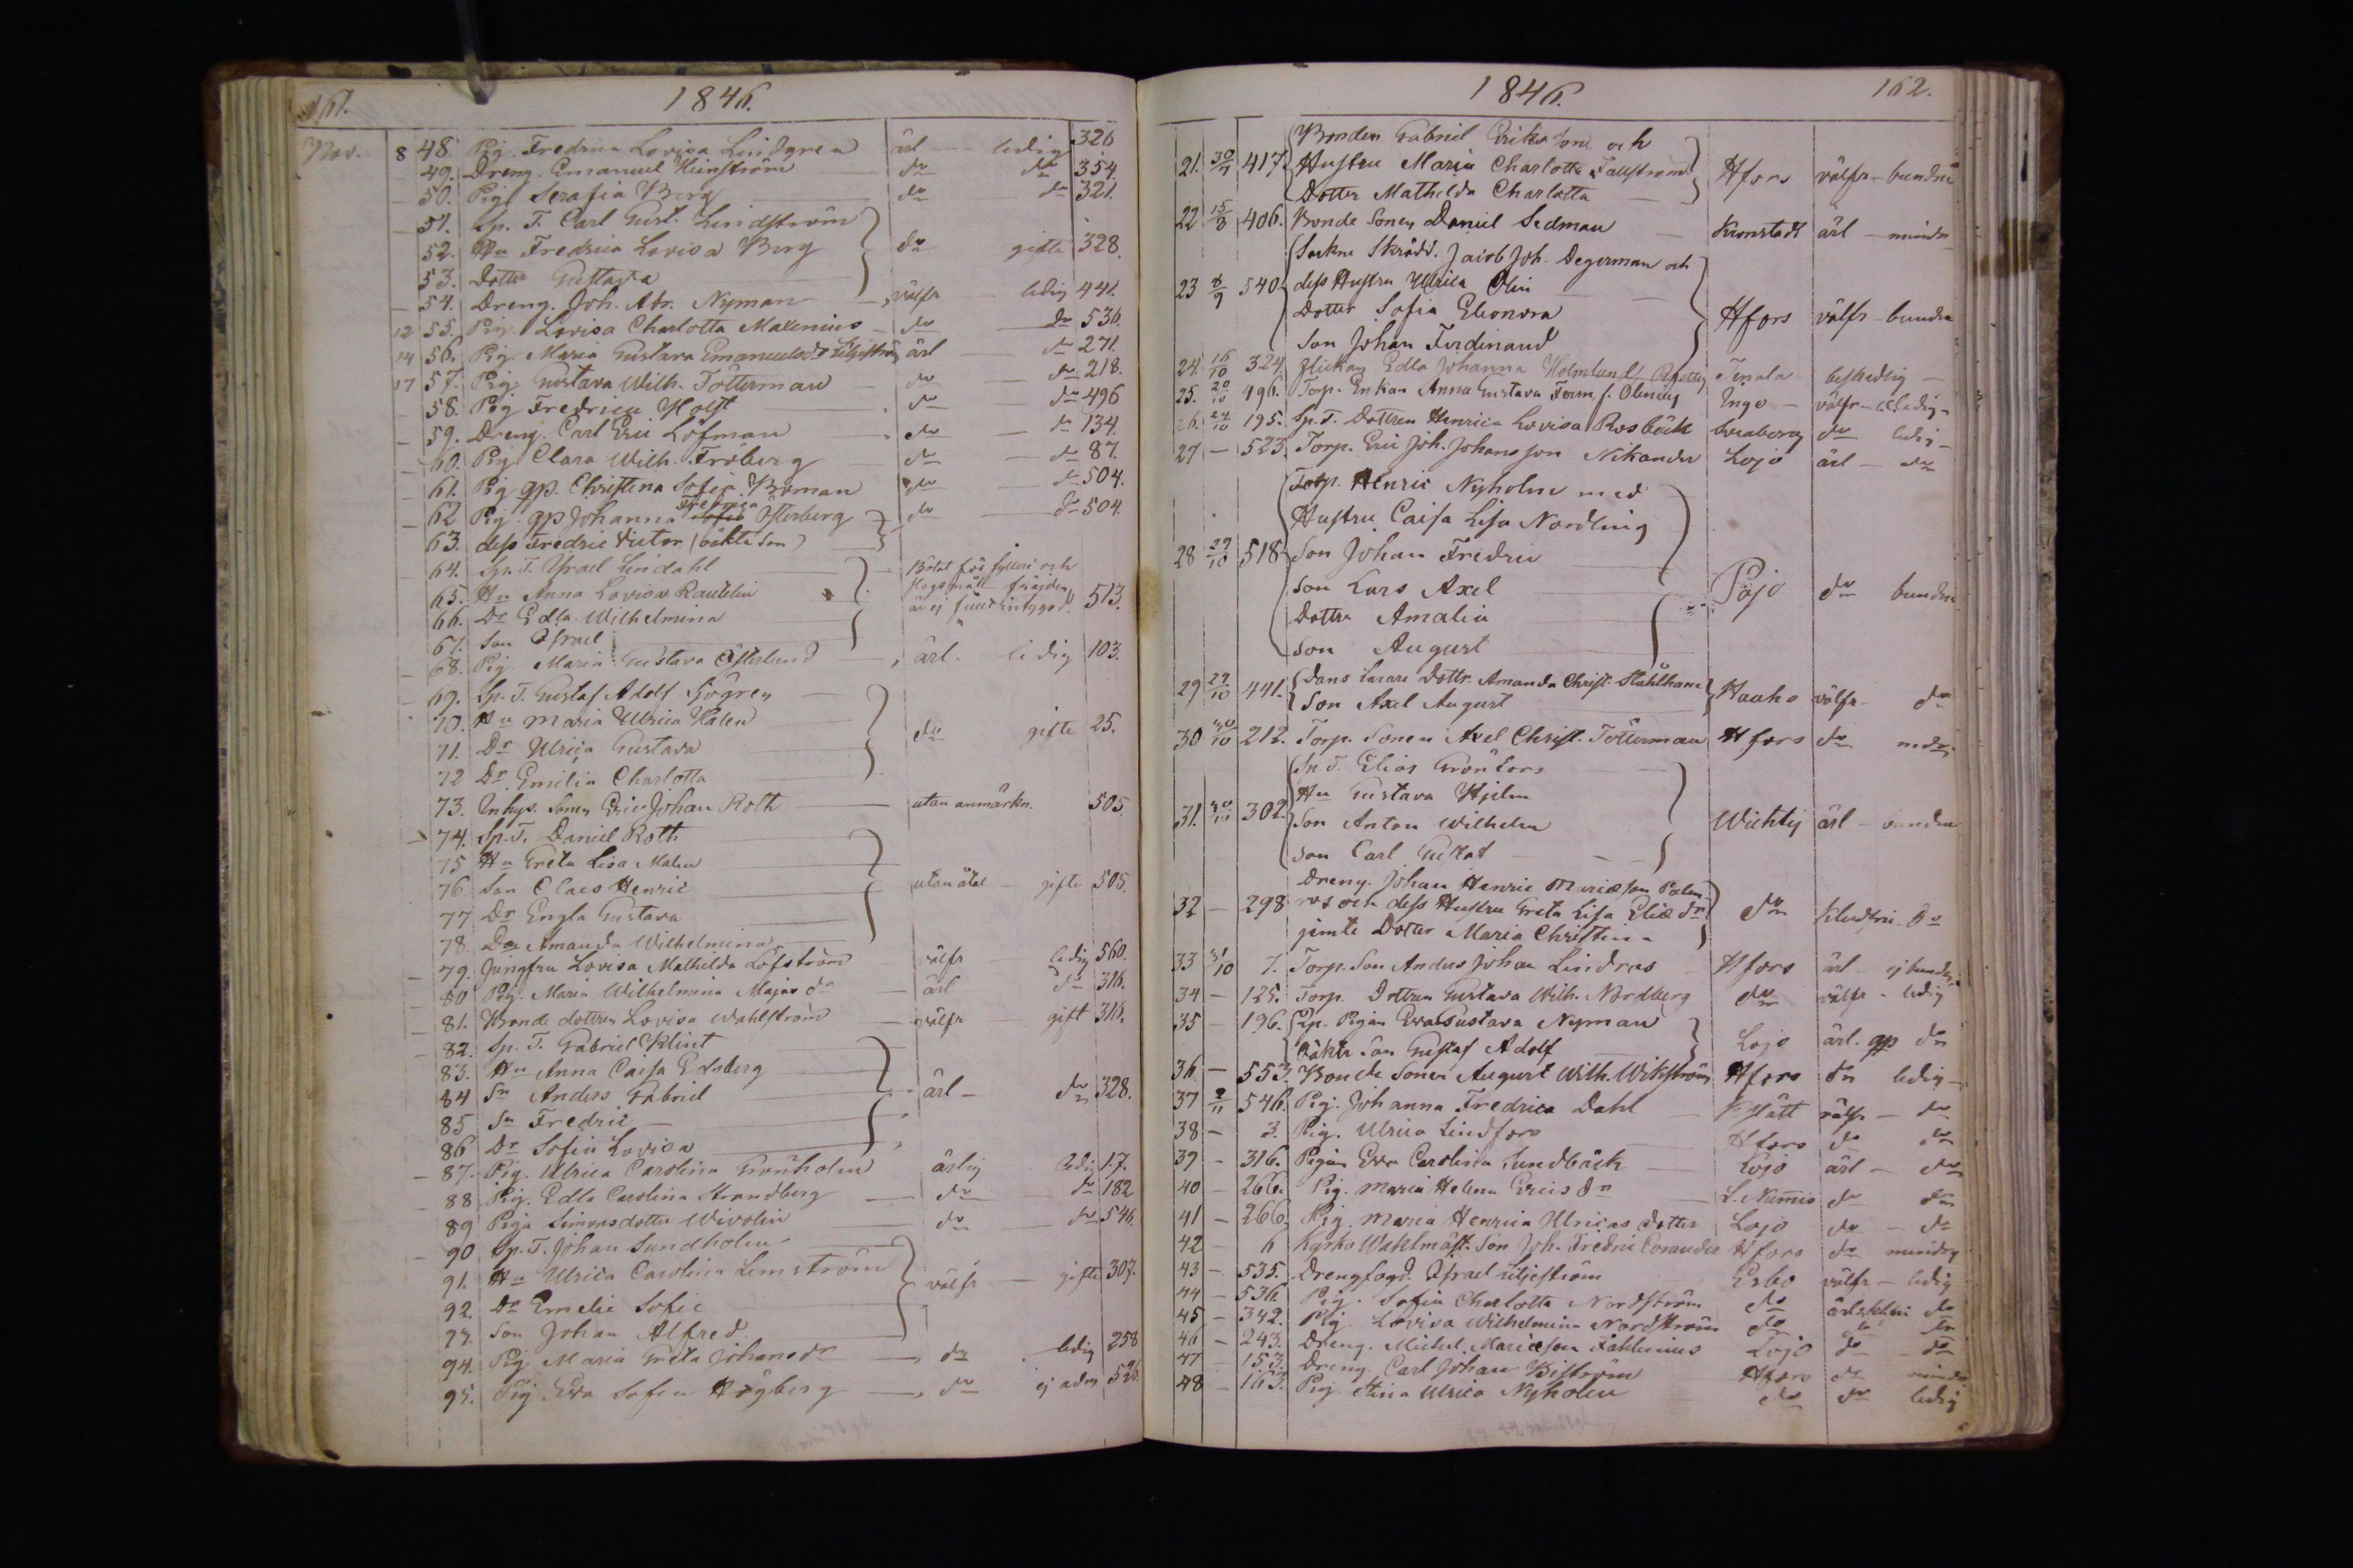 161. 1846.
Nov. 8 48. Pig. Fredrica Lovisa Lindgren ärl ledig 326
49. Dreng. Emanuel d:o d:o 354.
50. Pig. Serafia Berg d:o d:o 321.
51. Sp. T. Carl Gust. Lindström
52. Hu Fredrica Lovisa Berg d:o gifte 328.
53. Dotter Gustava
54. Dreng. Joh. Abr. Nyman välfr ledig 441.
12 55. Pig. Lovisa Charlotta Malenius d:o d:o 536.
14 56. Pig. Maria Gustava Emanuelsdr Liljeström ärl d:o 271.
17 57. Pig. Gustava Wilh. Tötterman d:o d:o 218.
58. Pig Fredrica Holst d:o d:o 496
59. Dreng. Carl Eric Löfman d:o d:o 134.
60. Pig. Clara Wilh. Fröberg d:o d:o 87.
61. Pig. gp. Christina Sofia Boman d:o d:o 504.
62 Pig. gp Johanna Fredrica Österberg d:o d:o 504.
63. dess Fredric Victor (oäkta Son)
64. Sp. T. Israel Lindahl Bötat för fylleri och
65. Hu Anna Lovisa Rautelin slagsmål
66. Dr Edla Wilhelmina är ej 513.
67. Son Israel
68. Pig. Maria Gustava Österlund ärl. ledig 103.
69. Sp. T. Gustaf Adolf Sjögren
70. Hu Maria Ulrica Halen
71. Dr Ulrica Gustava d:o gifte 25.
72 Dr Emilia Charlotta
73. Inhys. Sonen Eric Johan Roth utan anmärkn. 505.
74. Sp. T. Daniel Roth
75 Hu Greta Lisa Malm
76. Son Claes Henric utan åtal gifte 505.
77 Dr Engla Gustava
78. Dr Amanda Wilhelmina
79. Jungfru Lovisa Mathilda Löfström välfr ledig 560.
80 Pig. Maria Wilhelmina Majas dr ärl d:o 316.
81. Bonde dottren Lovisa Wahlström välfr gift 316.
82. Sp. T. Gabriel Klint
83. Hu Anna Caisa Edsberg
84 Sn Anders Gabriel ärl d:o 328.
85 Sn Fredric
86 Dr Sofia Lovisa
87. Pig. Ulrica Carolina Grönholm ärlig ledig 17.
88 Pig. Edla Carolina Strandberg d:o d:o 182
89 Piga Simonsdotter Wivolin d:o d:o 546.
90 Sp. T. Johan Sundholm
91. Hu Ulrica Carolina Lemström välfr gifte 307.
92. Dr Emelie Sofie
93. Son Johan Alfred
94. Pig Maria Greta Johansdr d:o ledig 258
95. Pig. Eva Sofia Högberg d:o ej adm 526.
1846. 162.
Bonden Gabriel Ericsson och
21. 30/7 417. Hustru Maria Charlotta Fallström Hfors välfr bundne
Dotter Mathilda Charlotta
22 15/8 406. Bonde Sonen Daniel Sedman Kronstadt ärl minder
Sockne Skrädd. Jacob Joh. Degerman och
23 8/9 540. dess Hustru Ulrica Olin
Dotter Sofia Eleonora Hfors välfr bundna
Son Johan Ferdinand
24. 16/10 324. Flickan Edla Johanna Holmlund Tenala beskedlig
25. 20/10 496. Torp. Enkan Anna Gustava Form f. Olenius Ingo välfr ledig
26. 24/10 195. Sp. T. Dottren Henrica Lovisa Rosbäck Sveaborg d:o ledig
27 523. Torp. Eric Joh. Johansson Nikander Lojo ärl d:o
Torp. Henric Nyholm med
Hustru Caisa Lisa Nordling
28 29/10 518. Son Johan Fredric
Son Lars Axel Pojo d:o bundne
Dotter Amalia
Son August
29 29/10 441. Dans Lärare Dottr. Amanda Christ. Stählhane Hauho välfr d:o
Son Axel August
30 30/10 212. Torp. Sonen Axel Christ. Tötterman Hfors d:o
Sp. T. Elias Grönfors
Hu Gustava Hjelm
31. 30/10 302. Son Anton Wilhelm Wichtis ärl bundna
Son Carl Gustaf
Dreng. Johan Henric Mariæson Palen-
32 298 ros och dess Hustru Greta Lisa Eliædr d:o d:o
jemte Dotter Maria Christina
33 31/10 7. Torp. Son Anders Johan Lindros Hfors ärl ej bunden
34 125. Torp. Dottren Gustava Wilh. Nordberg d:o välfr ledig
35 196. gp. Pigan Eva Gustava Nyman
Oäkta Son Gustaf Adolf Lojo ärl. gp d:o
36 553. Bonde Sonen August Wilh. Wikström Hfors d:o ledig
37 2/11 546. Pig. Johanna Fredrica Dahl Kslätt välfr d:o
38 3. Pig. Ulrica Lindfors Hfors d:o d:o
39 316. Pigan Eva Carolina Sundbäck Lojo ärl d:o
40 266. Pig. Maria Helena Ericsdr L. Numis d:o d:o
41 266. Pig. Maria Henrica Ulricas dotter Lojo d:o d:o
42 6 Kyrko Waktmäst. Son Joh. Fredric Corander Hfors d:o minder
43 535. Drengfogd. Israel Liljeström Esbo välfr ledig
44 536. Pig. Sofia Charlotta Nordström d:o d:o
45 342. Pig. Lovisa Wilhelmina Nordström d:o d:o d:o
46 243. Dreng. Michel Mariæson Fahlenius Lojo d:o d:o
47 153. Dreng. Carl Johan Biström Hfors d:o
48 163. Pig Stina Ulrica Nyholm d:o d:o ledig